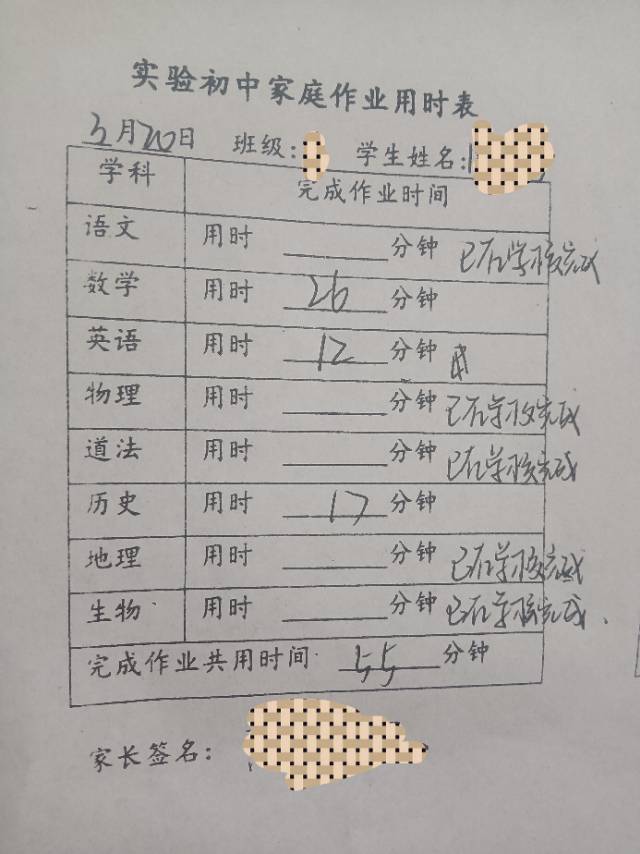 实验初中家庭作业用时表
3月20日 班级: 学生姓名:
学科 完成作业时间
语文 用时 分钟 已在学校完成
数学 用时 26 分钟
英语 用时 12 分钟
物理 用时 分钟 已在学校完成
道法 用时 分钟 已在学校完成
历史 用时 17 分钟
地理 用时 分钟 已在学校完成
生物 用时 分钟 已在学校完成.
完成作业共用时间 55 分钟
家长签名: